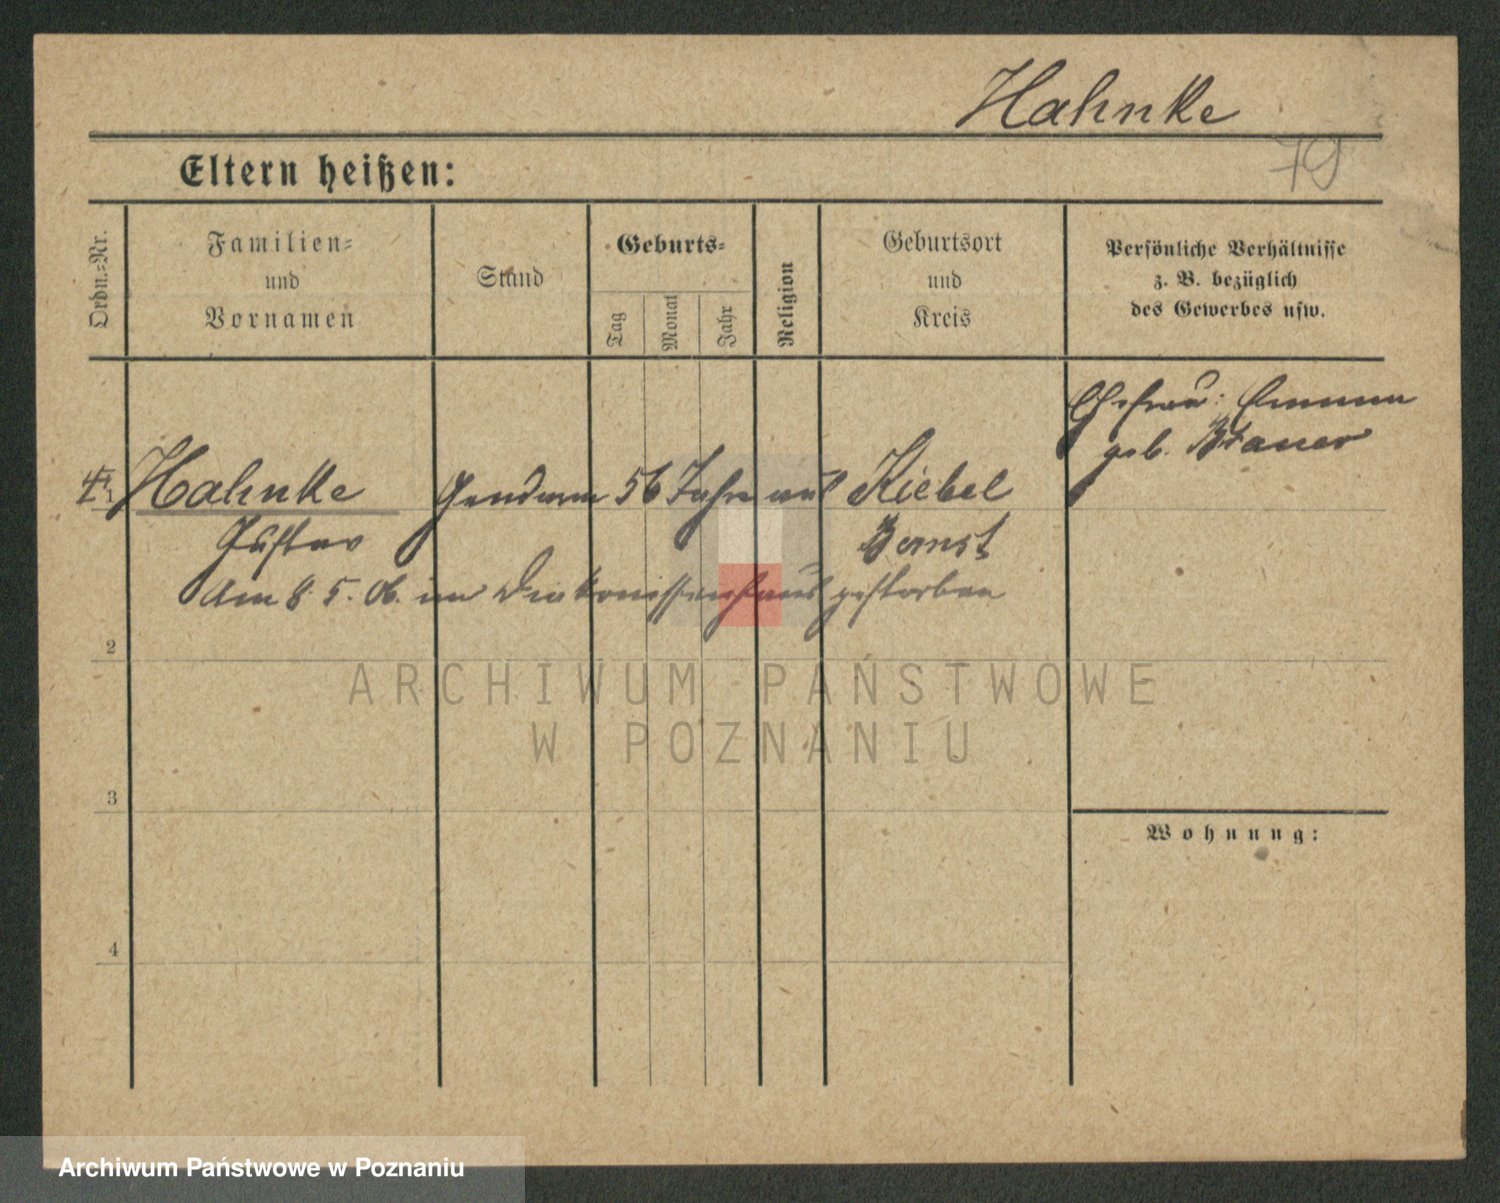 Hahnke
79
Eltern heißen:
Ordn.=Nr.
Familien=
und
Vornamen
Stand
Geburts=
Tag
Monat
Jahr
Religion
Geburtsort
und
Kreis
Persönliche Verhältnisse
z. B. bezüglich
des Gewerbes usw.
Ehefrau: Emma
geb. Brauer
Hahnke Gendarm 56 Jahre alt Kiebel
Gustav Bomst
Am 8. 5. 06. im Diakonissenhaus gestorben
2
3
4
Wohnung:
ARCHIWUM PAŃSTWOWE
W POZNANIU
Archiwum Państwowe w Poznaniu